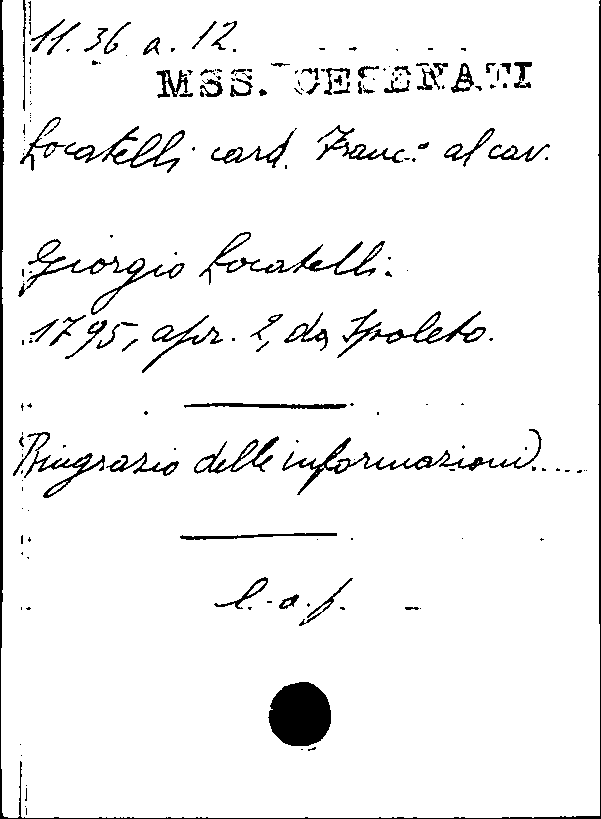 11. 36 a. 12.
MSS. CESENATI
Locatelli card. Franc.º al cav.
Giorgio Locatelli.
1795, apr. 2, da Spoleto.
Ringrazio delle informazioni.....
l. a. f.